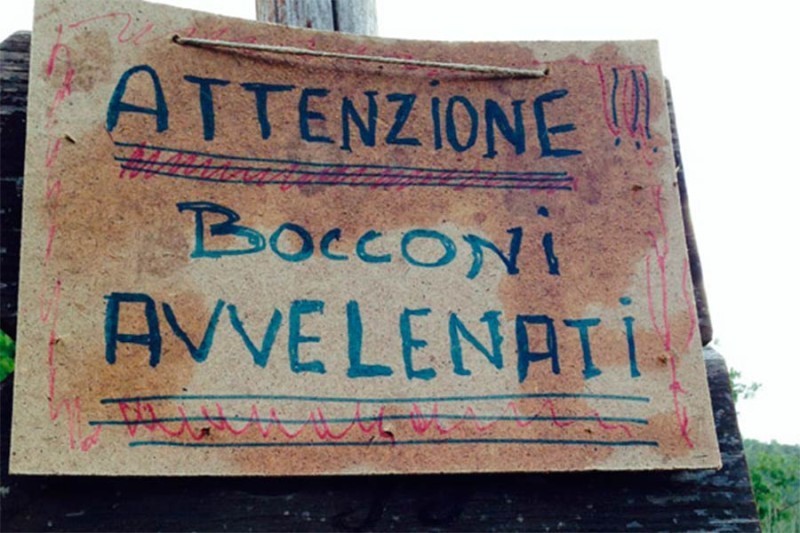 ATTENZiONE !!!
BOCCONi
AVVELENATi